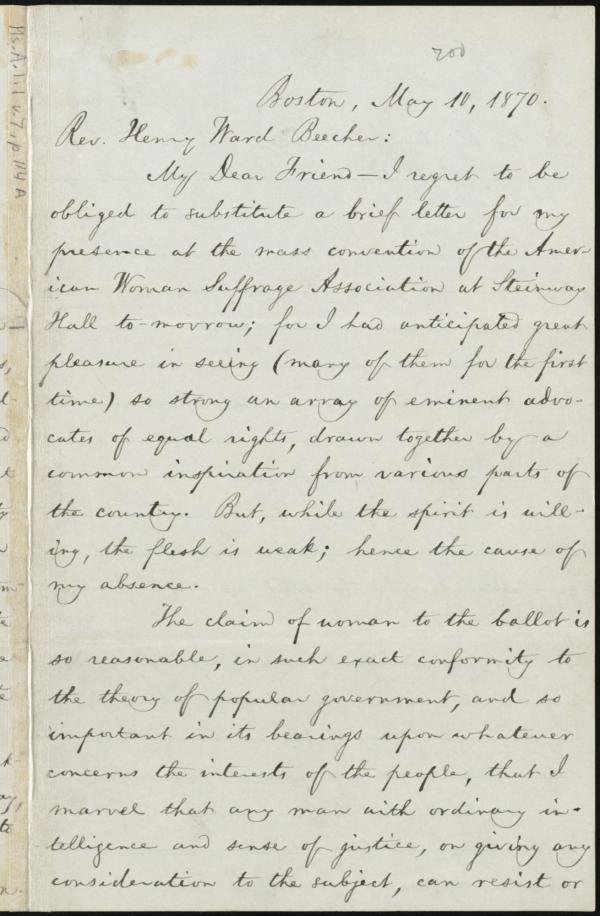 200
Ms.A.1.1 v.7, p.114A
Boston, May 10, 1870.
Rev. Henry Ward Beecher:
My Dear Friend—I regret to be
obliged to substitute a brief letter for my
presence at the mass convention of the Amer-
ican Woman Suffrage Association at Steinway
Hall to-morrow; for I had anticipated great
pleasure in seeing (many of them for the first
time) so strong an array of eminent advo-
cates of equal rights, drawn together by a
common inspiration from various parts of
the country. But, while the spirit is will-
ing, the flesh is weak; hence the cause of
my absence.
The claim of woman to the ballot is
so reasonable, in such exact conformity to
the theory of popular government, and so
important in its bearings upon whatever
concerns the interests of the people, that I
marvel that any man with ordinary in-
telligence and sense of justice, on giving any
consideration to the subject, can resist or